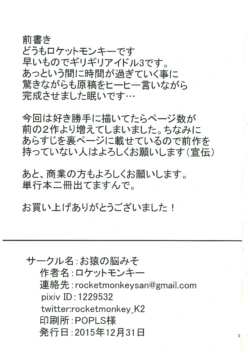 前書き
どうもロケットモンキーです
早いものでギリギリアイドル3です。
あっという間に時間が過ぎていく事に
驚きながらも原稿をヒーヒー言いながら
完成させました眠いです…
今回は好き勝手に描いてたらページ数が
前の2作より増えてしまいました。ちなみに
あらすじを裏ページに載せているので前作を
持っていない人はよろしくお願いします(宣伝)
あと、商業の方もよろしくお願いします。
単行本二冊出てますんで。
お買い上げありがとうございました！
サークル名：お猿の脳みそ
作者名：ロケットモンキー
連絡先：rocketmonkeysan@gmail.com
pixiv ID：1229532
twitter:rocketmonkey_K2
印刷所：POPLS様
発行日：2015年12月31日